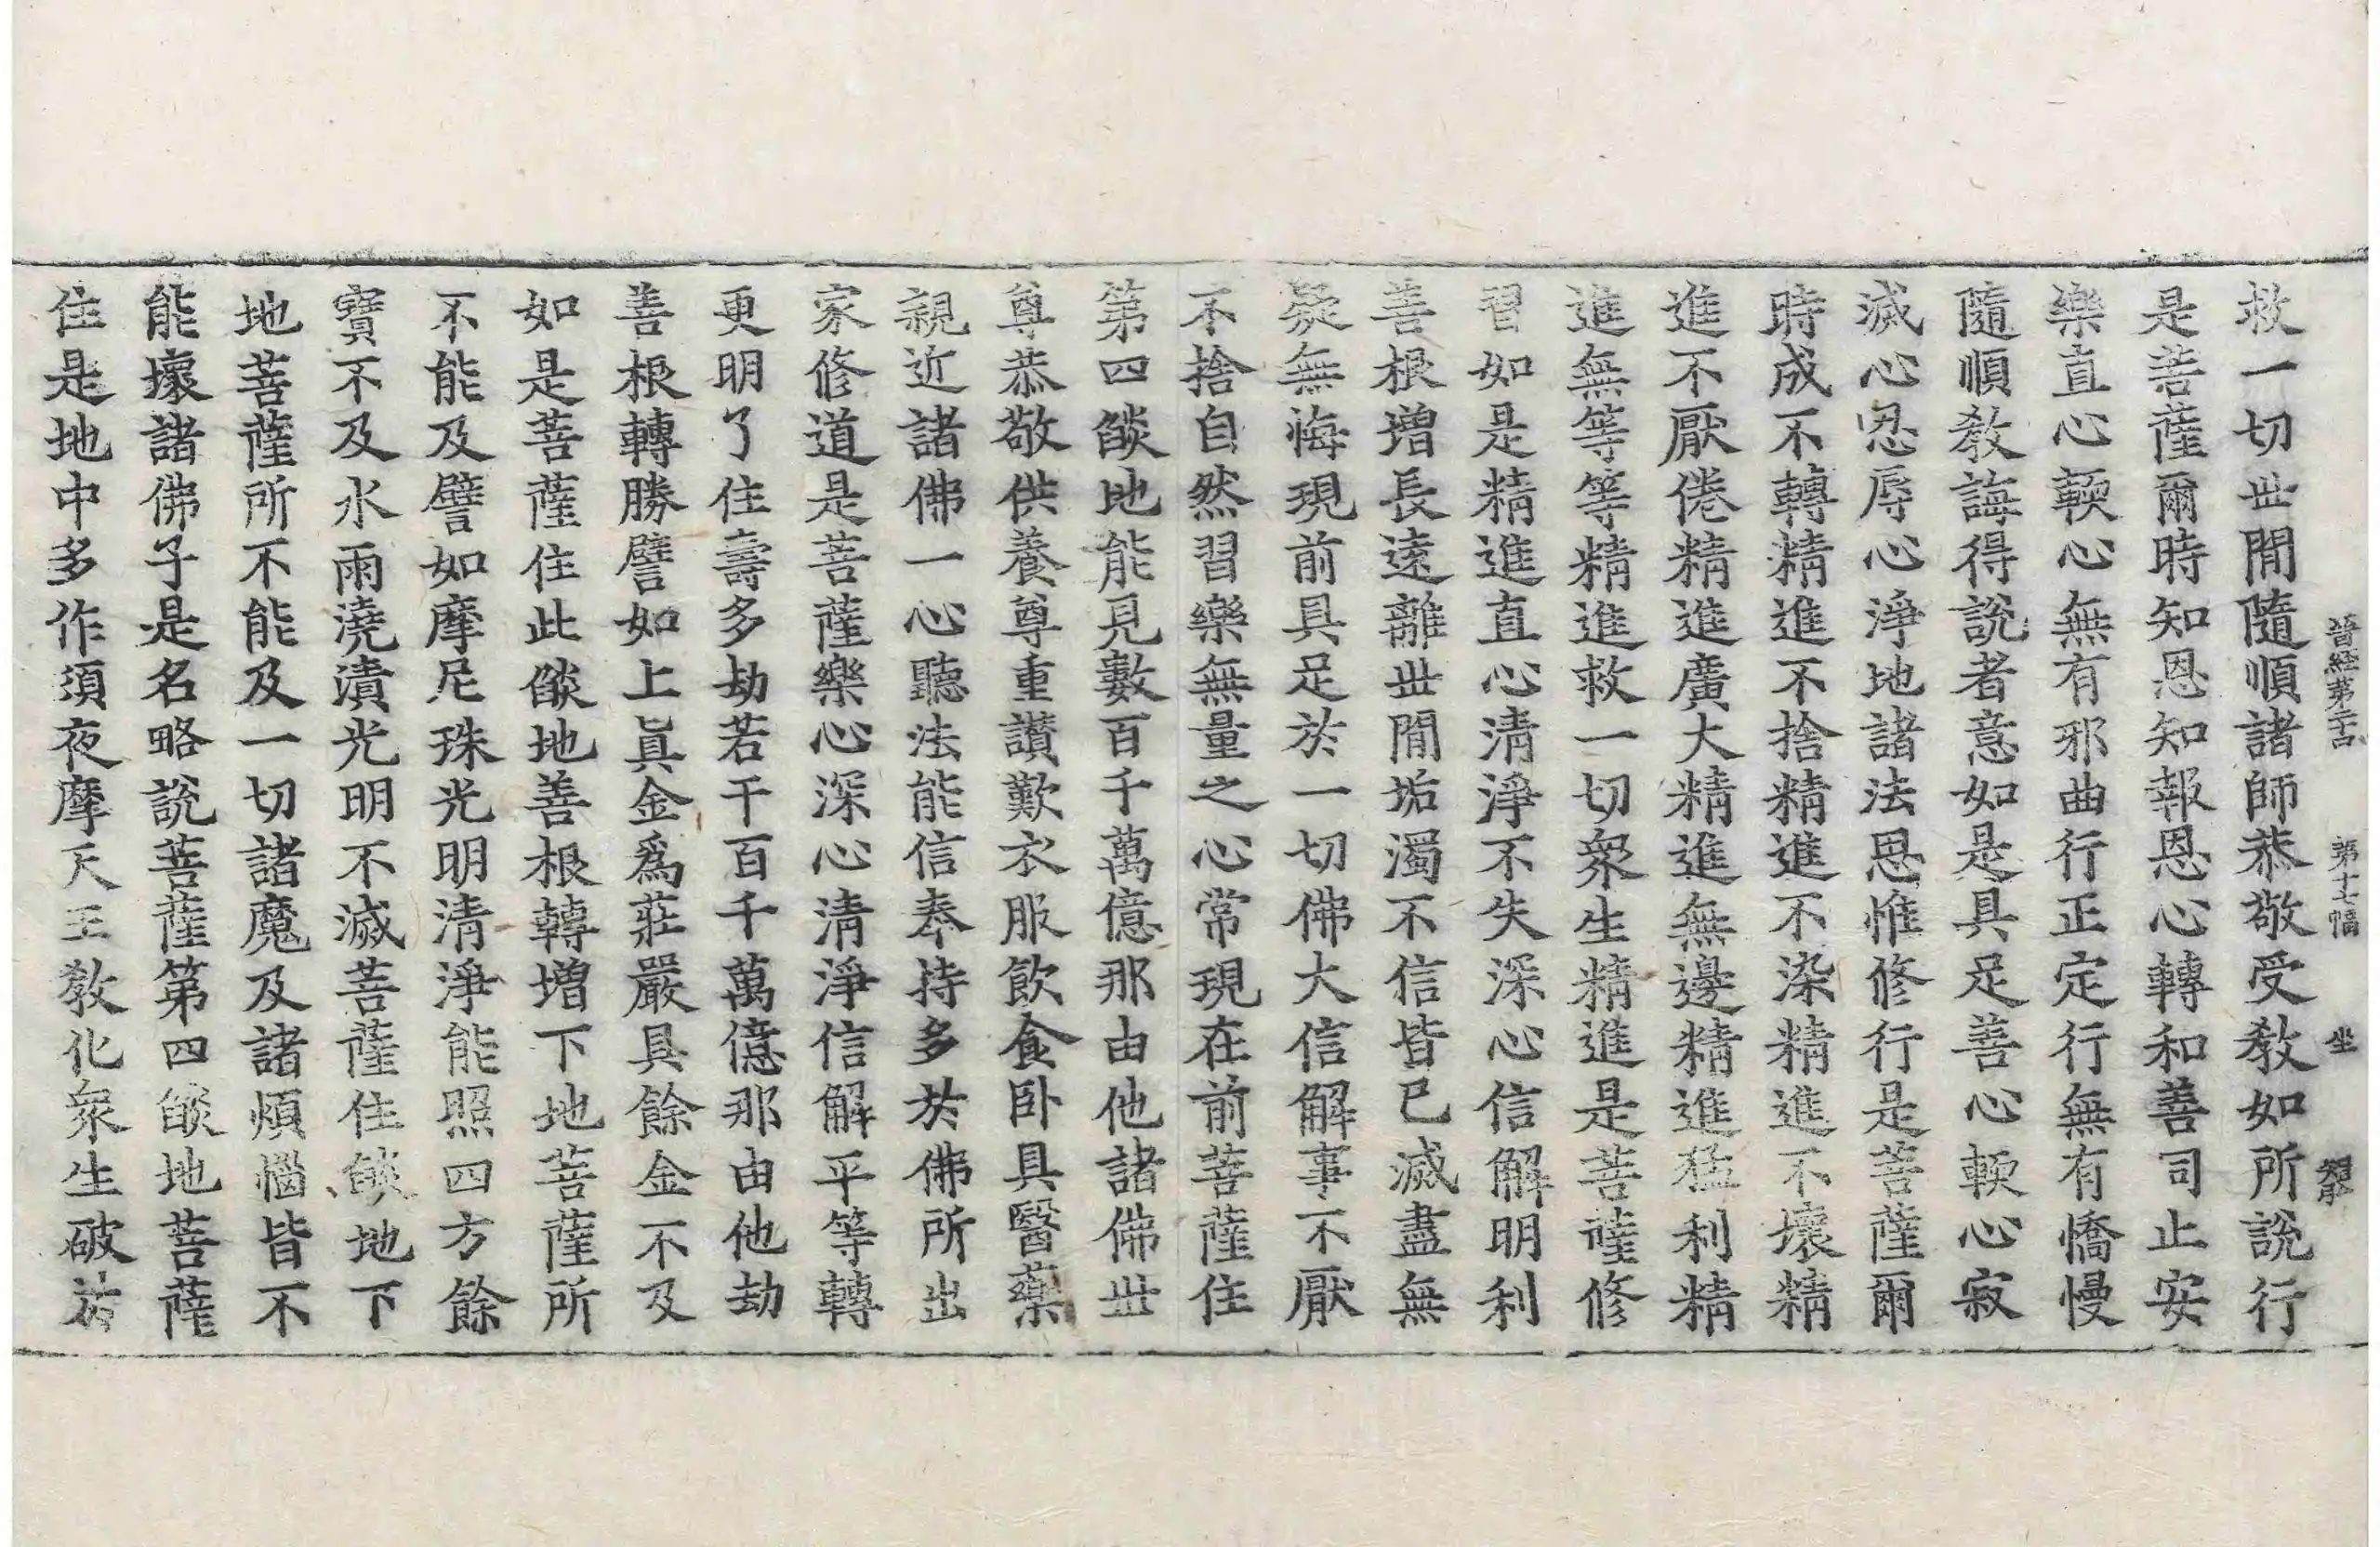 晉經第二十四 第十七幅 坐
救一切世間隨順諸師恭敬受教如所說行
是菩薩爾時知恩知報恩心轉和善司止安
樂直心軟心無有邪曲行正定行無有憍慢
隨順教誨得說者意如是具足善心軟心寂
滅心忍辱心淨地諸法思惟修行是菩薩爾
時成不轉精進不捨精進不染精進不壞精
進不厭倦精進廣大精進無邊精進猛利精
進無等等精進救一切眾生精進是菩薩修
習如是精進直心清淨不失深心信解明利
善根增長遠離世間垢濁不信皆已滅盡無
疑無悔現前具足於一切佛大信解事不厭
不捨自然習樂無量之心常現在前菩薩住
第四燄地能見數百千萬億那由他諸佛世
尊恭敬供養尊重讚歎衣服飲食卧具醫藥
親近諸佛一心聽法能信奉持多於佛所出
家修道是菩薩樂心深心清淨信解平等轉
更明了住壽多劫若干百千萬億那由他劫
善根轉勝譬如上真金為莊嚴具餘金不及
如是菩薩住此燄地善根轉增下地菩薩所
不能及譬如摩尼珠光明清淨能照四方餘
寶不及水雨澆漬光明不滅菩薩住燄地下
地菩薩所不能及一切諸魔及諸煩惱皆不
能壞諸佛子是名略說菩薩第四燄地菩薩
住是地中多作須夜摩天王教化眾生破於